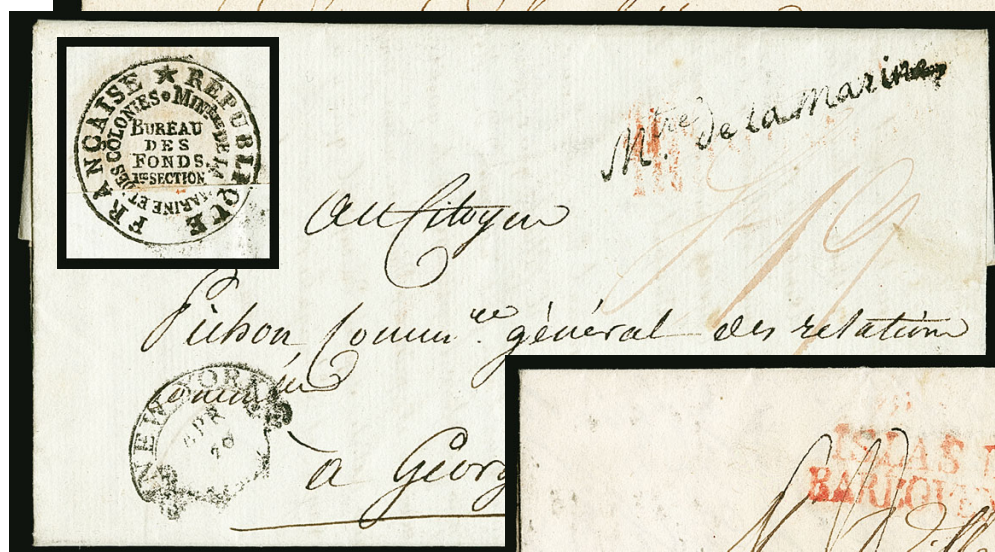 RÉPUBLIQUE FRANÇAISE
MINRE DE LA MARINE ET DES COLONIES
BUREAU
DES
FONDS.
1re SECTION
Mtre. de la marine
au Citoyen
Pichon Commre. général des relation
à Georg
NEW YORK
APR
20
ISLAS
BARLOVEN